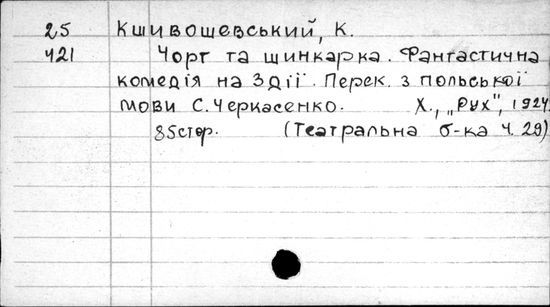 25 Кшивошевський, К.
421 Чорт та шинкарка. Фантастична
комедія на 3 дії. Перек. з польської
мови С. Черкасенко. Х., „Рух”, 1924
85стор. (Театральна б-ка ч. 29)